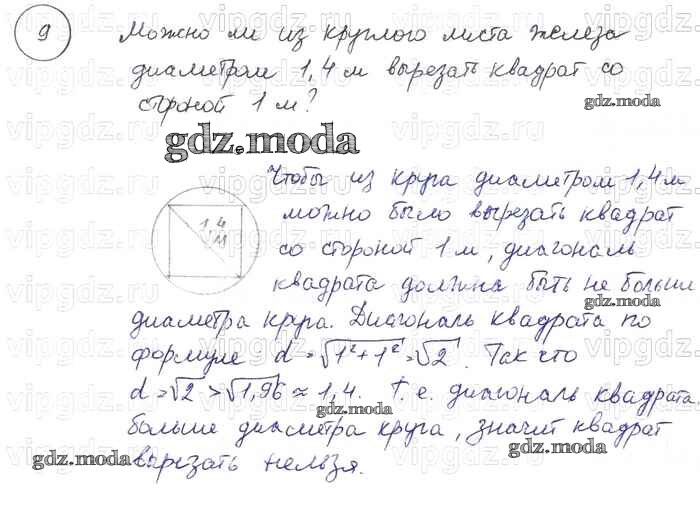 9
Можно ли из круглого листа железа
диаметром 1,4 м вырезать квадрат со
стороной 1 м?
gdz.moda
gdz.moda
Чтобы из круга диаметром 1,4 м
можно было вырезать квадрат
со стороной 1 м, диагональ
квадрата должна быть не больше
1,4
м
gdz.moda
диаметра круга. Диагональ квадрата по
формуле d = √1²+1² = √2. Так что
d = √2 > √1,96 ≈ 1,4. Т.е. диагональ квадрата
gdz.moda
больше диаметра круга, значит квадрат
gdz.moda
gdz.moda
вырезать нельзя.
vipgdz.ru